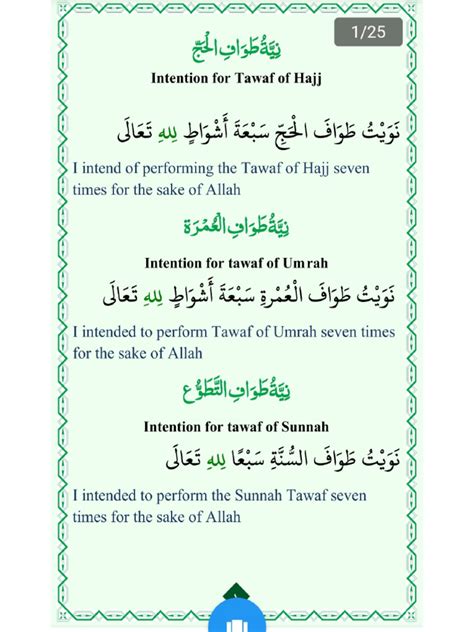 1/25
نِيَّةُ طَوَافِ الْحَجِّ
Intention for Tawaf of Hajj
نَوَيْتُ طَوَافَ الْحَجِّ سَبْعَةَ أَشْوَاطٍ لِلهِ تَعَالَى
I intend of performing the Tawaf of Hajj seven
times for the sake of Allah
نِيَّةُ طَوَافِ الْعُمْرَة
Intention for tawaf of Umrah
نَوَيْتُ طَوَافَ الْعُمْرِةِ سَبْعَةَ أَشْوَاطٍ لِلهِ تَعَالَى
I intended to perform Tawaf of Umrah seven times
for the sake of Allah
نِيَّةُ طَوَافِ التَّطَوُّع
Intention for tawaf of Sunnah
نَوَيْتُ طَوَافَ السُّنَّةِ سَبْعًا لِلهِ تَعَالَى
I intended to perform the Sunnah Tawaf seven
times for the sake of Allah